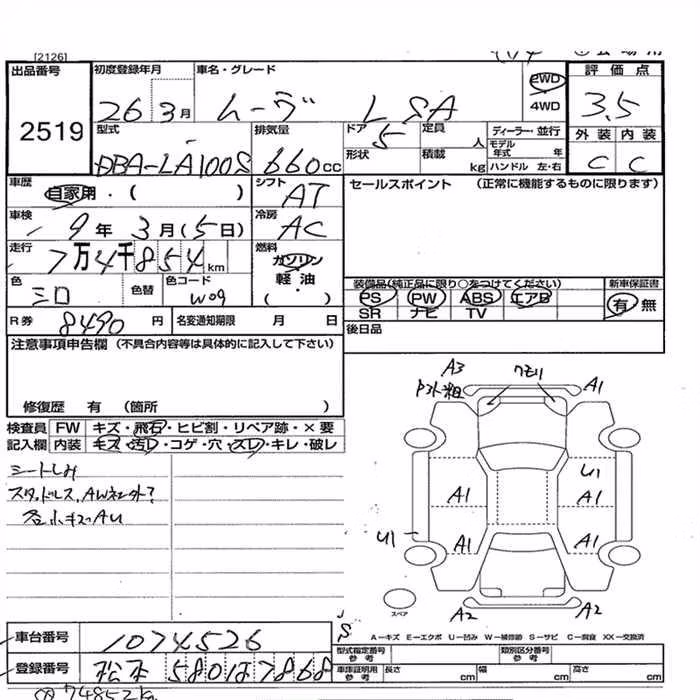 [2126]
出品番号 初度登録年月 車名・グレード 2WD 評価点
2519 26 3月 ムーヴ L SA 4WD 3.5
型式 排気量 ドア 定員 ディーラー・並行 外装 内装
DBA-LA100S 660cc 5 人 モデル年式 年 C C
形状 積載 kg ハンドル 左・右
車歴 自家用・( ) シフト AT セールスポイント (正常に機能するものに限ります)
車検 9年3月(5日) 冷房 AC
走行 7万4千854km 燃料 ガソリン
軽油・( )
色 シロ 色替 色コード W09
装備品(純正品に限り○をつけてください) 新車保証書
PS PW ABS エアB 有 無
SR ナビ TV
R券 8490円 名変通知期限 月 日 後日品
注意事項申告欄 (不具合内容等は具体的に記入して下さい)
修復歴 有 (箇所 )
検査員 FW キズ・飛石・ヒビ割・リペア跡・×要
記入欄 内装 キズ・汚レ・コゲ・穴・スレ・キレ・破レ
シートしみ
スタッドレス、AW社外?
各小キズAU
A3 クモリ A1
A1 U1
A1
U1 A1 A1
スペア A2 A2
A-キズ E-エクボ U-凹み W-補修跡 S-サビ C-腐食 XX-交換済
車台番号 1074526
型式指定番号 参考 類別区分番号 参考
登録番号 松本 580は7868
車庫証明用 参考 長さ cm 幅 cm 高さ cm